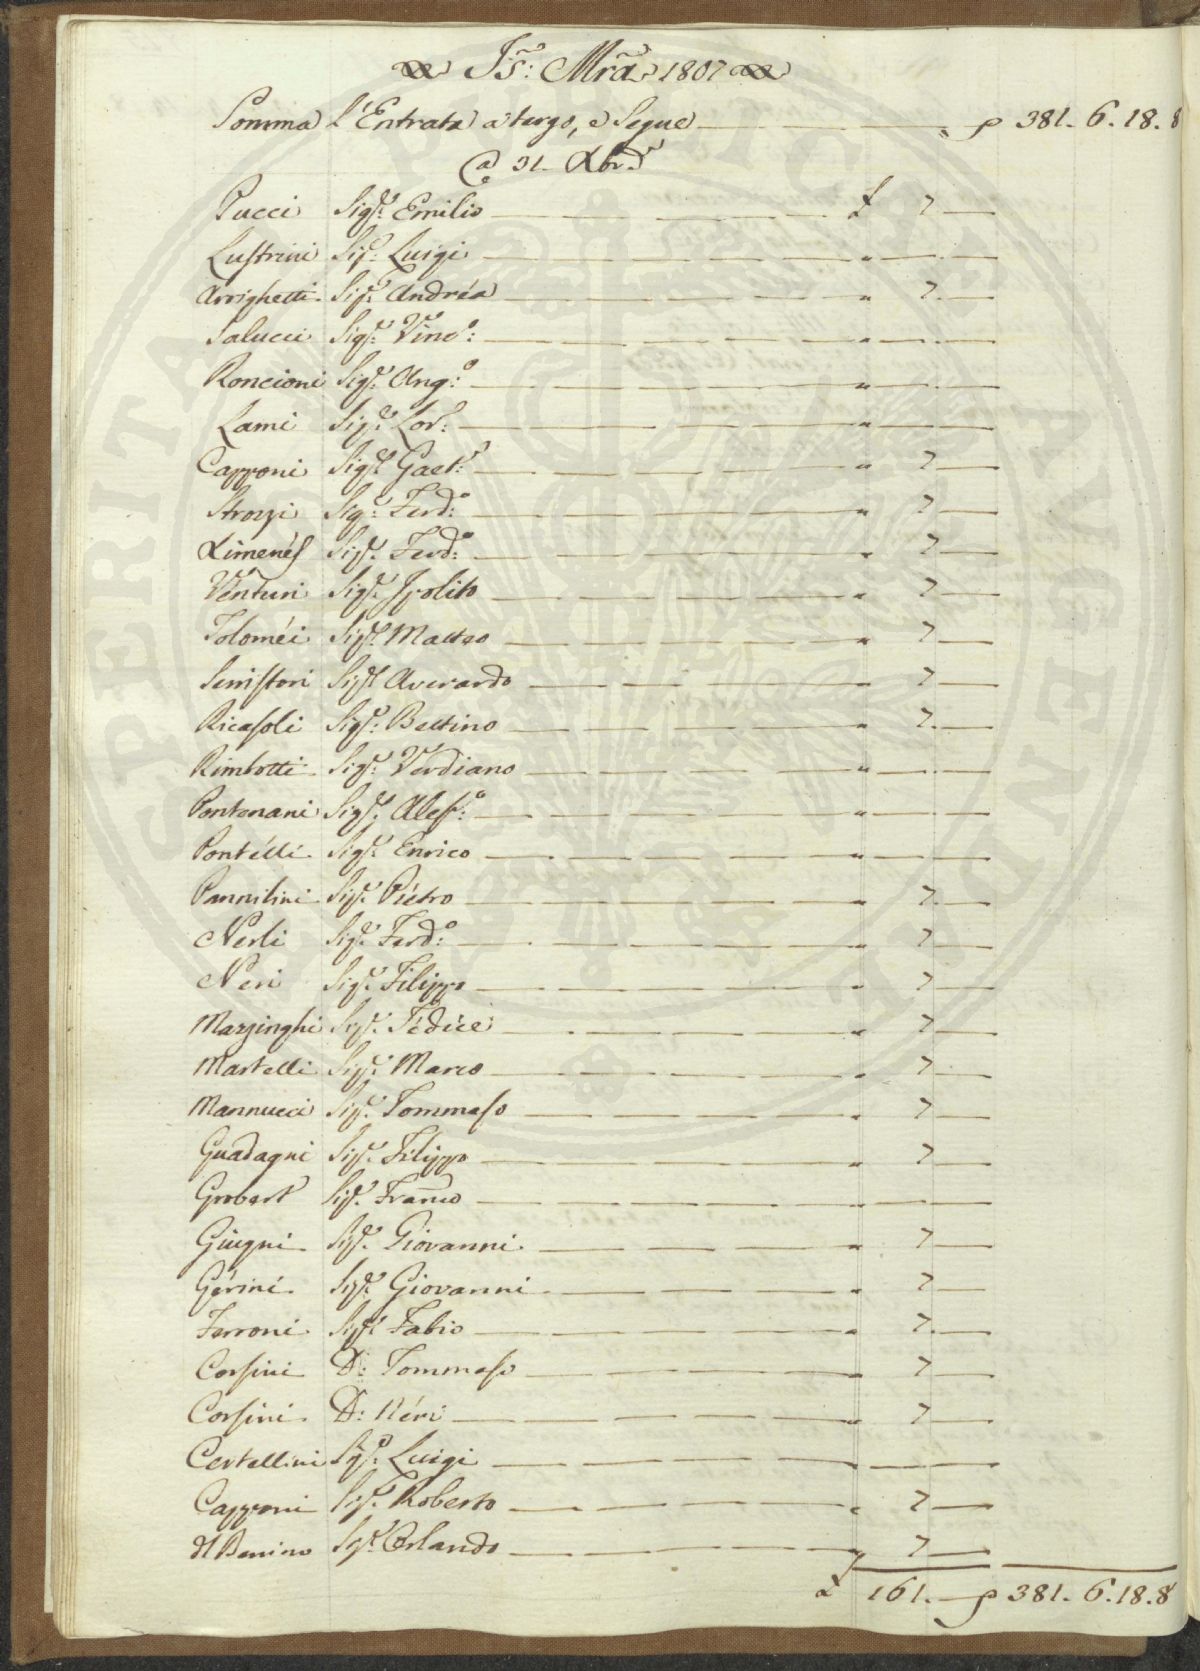 Js: Mra 1807
Somma l'Entrata a tergo, e Segue p 381. 6. 18. 8
a 31. Xbre
Pucci Sigr. Emilio £ 7
Lustrini Sigr. Luigi "
Arrighetti Sigr. Andréa " 7.
Salucci Sigr. Vinco: "
Roncioni Sigr. Ango: "
Lami Sigr. Lor: "
Capponi Sigr. Gaet: " 7
Strozzi Sigr. Ferdo: " 7
Ximenés Sigr. Ferdo: " 7
Venturi Sigr. Ipolito " 7
Toloméi Sigr. Matteo " 7
Serristori Sigr. Averardo " 7
Ricasoli Sigr. Bettino " 7.
Rimbotti Sigr. Verdiano "
Pontenani Sigr. Aleso: "
Pontélli Sigr. Enrico "
Pannilini Sigr. Piétro " 7.
Nerli Sigr. Ferdo: " 7
Neri Sigr. Filippo " 7
Marzinghi Sigr. Fédice " 7
Martelli Sigr. Marco " 7
Mannucci Sigr. Tommaso " 7
Guadagni Sigr. Filippo " 7
Grobert Sigr. Franco "
Giugni Sigr. Giovanni " 7
Gérini Sigr. Giovanni " 7
Ferroni Sigr. Fabio " 7.
Corsini D: Tommaso " 7
Corsini D: Néri " 7
Certellini Sigr. Luigi "
Capponi Sigr. Roberto " 7
del Benino Sigr. Orlando " 7
£ 161. p 381. 6. 18. 8
SPERITAS PUBLICA AUGENDA